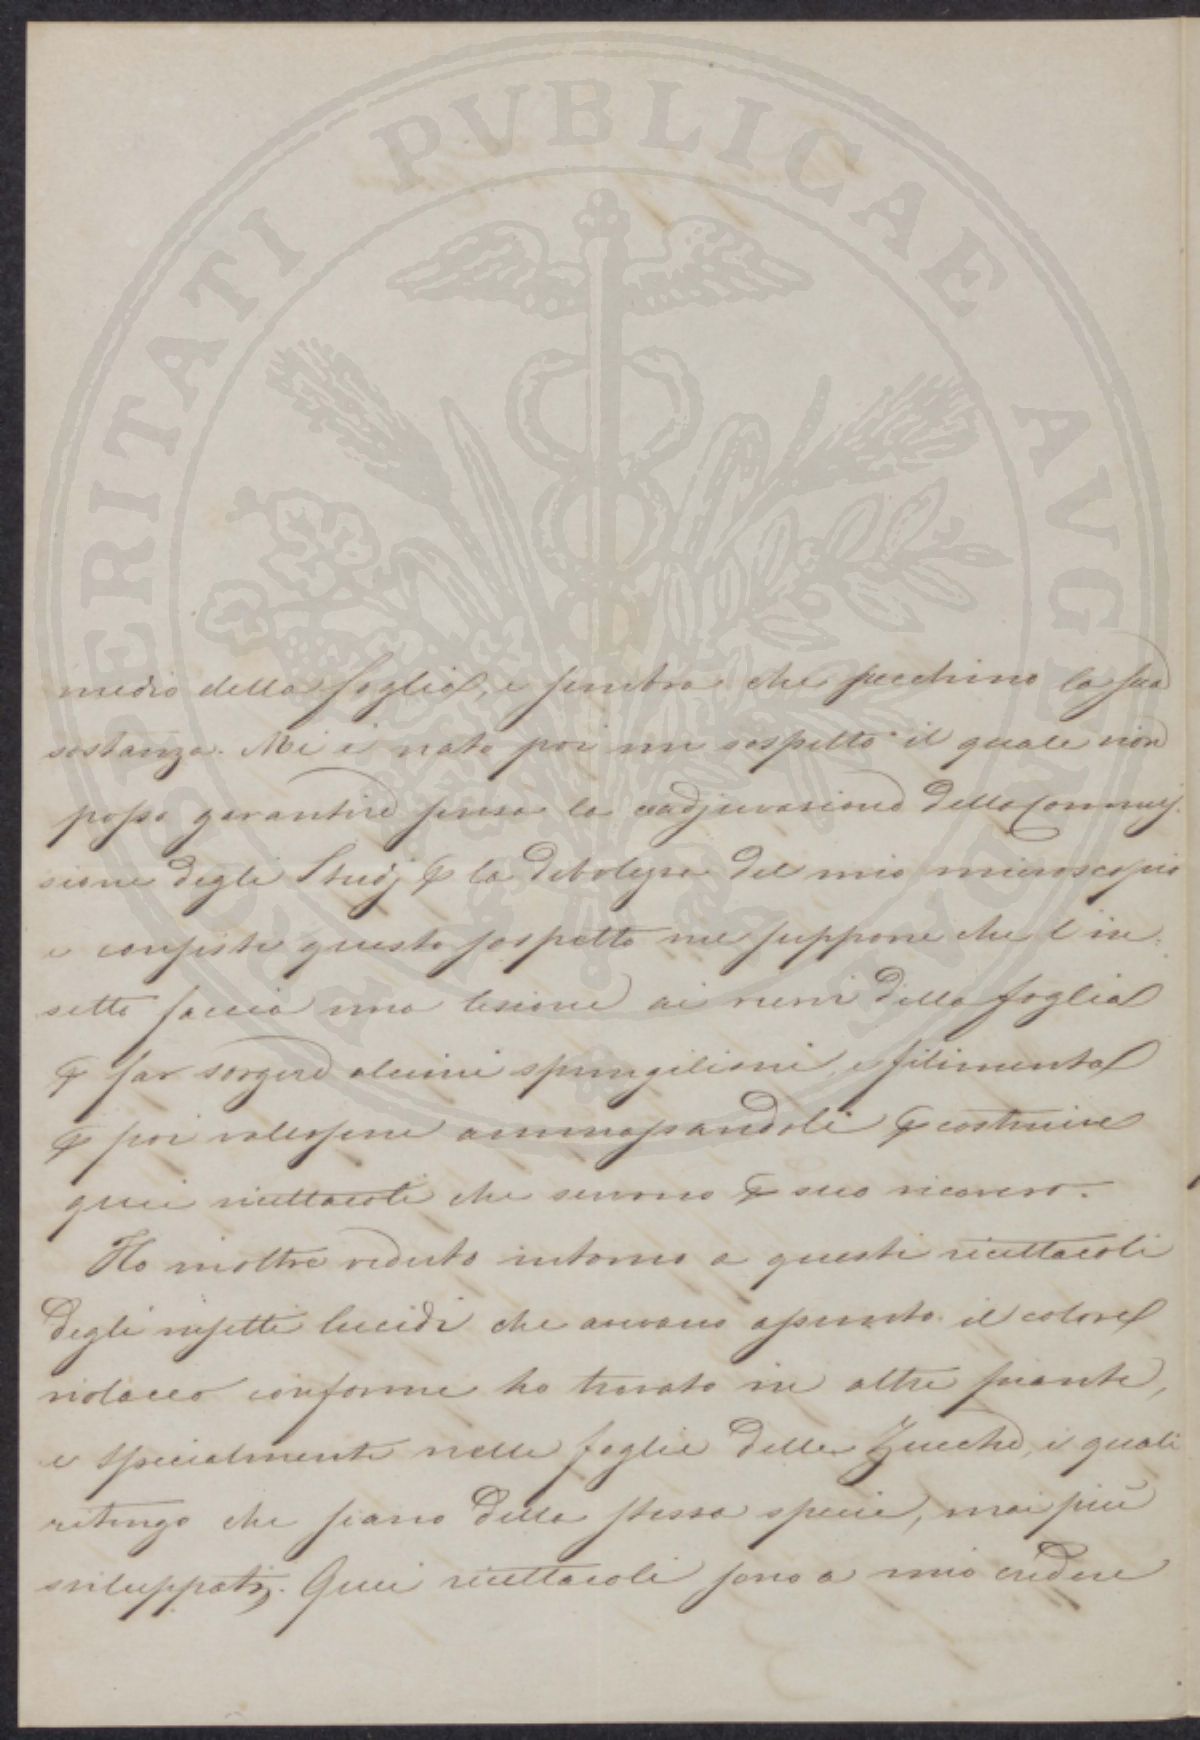 PROSPERITATI PUBLICAE AUGENDAE
medio della foglia, e sembra che secchino la sua
sostanza. Mi è nato poi un sospetto il quale non
posso garantire senza la coadjuvazione della Commis
sione degli Studj p la debolezza del mio microscopio
e consiste questo sospetto nel suppone che l'in
setto faccia una lesione ai nervi della foglia
p far sorgere alcuni spungilioni, e filimenta
p poi valersene ammassandoli p costruire
quei ricettacoli che servono p suo ricovero.
Ho inoltre veduto intorno a questi ricettacoli
degli insetti lucidi che aveano apunto il colore
violaceo conforme ho trovato in altre piante,
e specialmente nelle foglie delle Zucche, i quali
ritengo che siano della stessa specie, mai più
sviluppati. Quei ricettacoli sono a mio credere